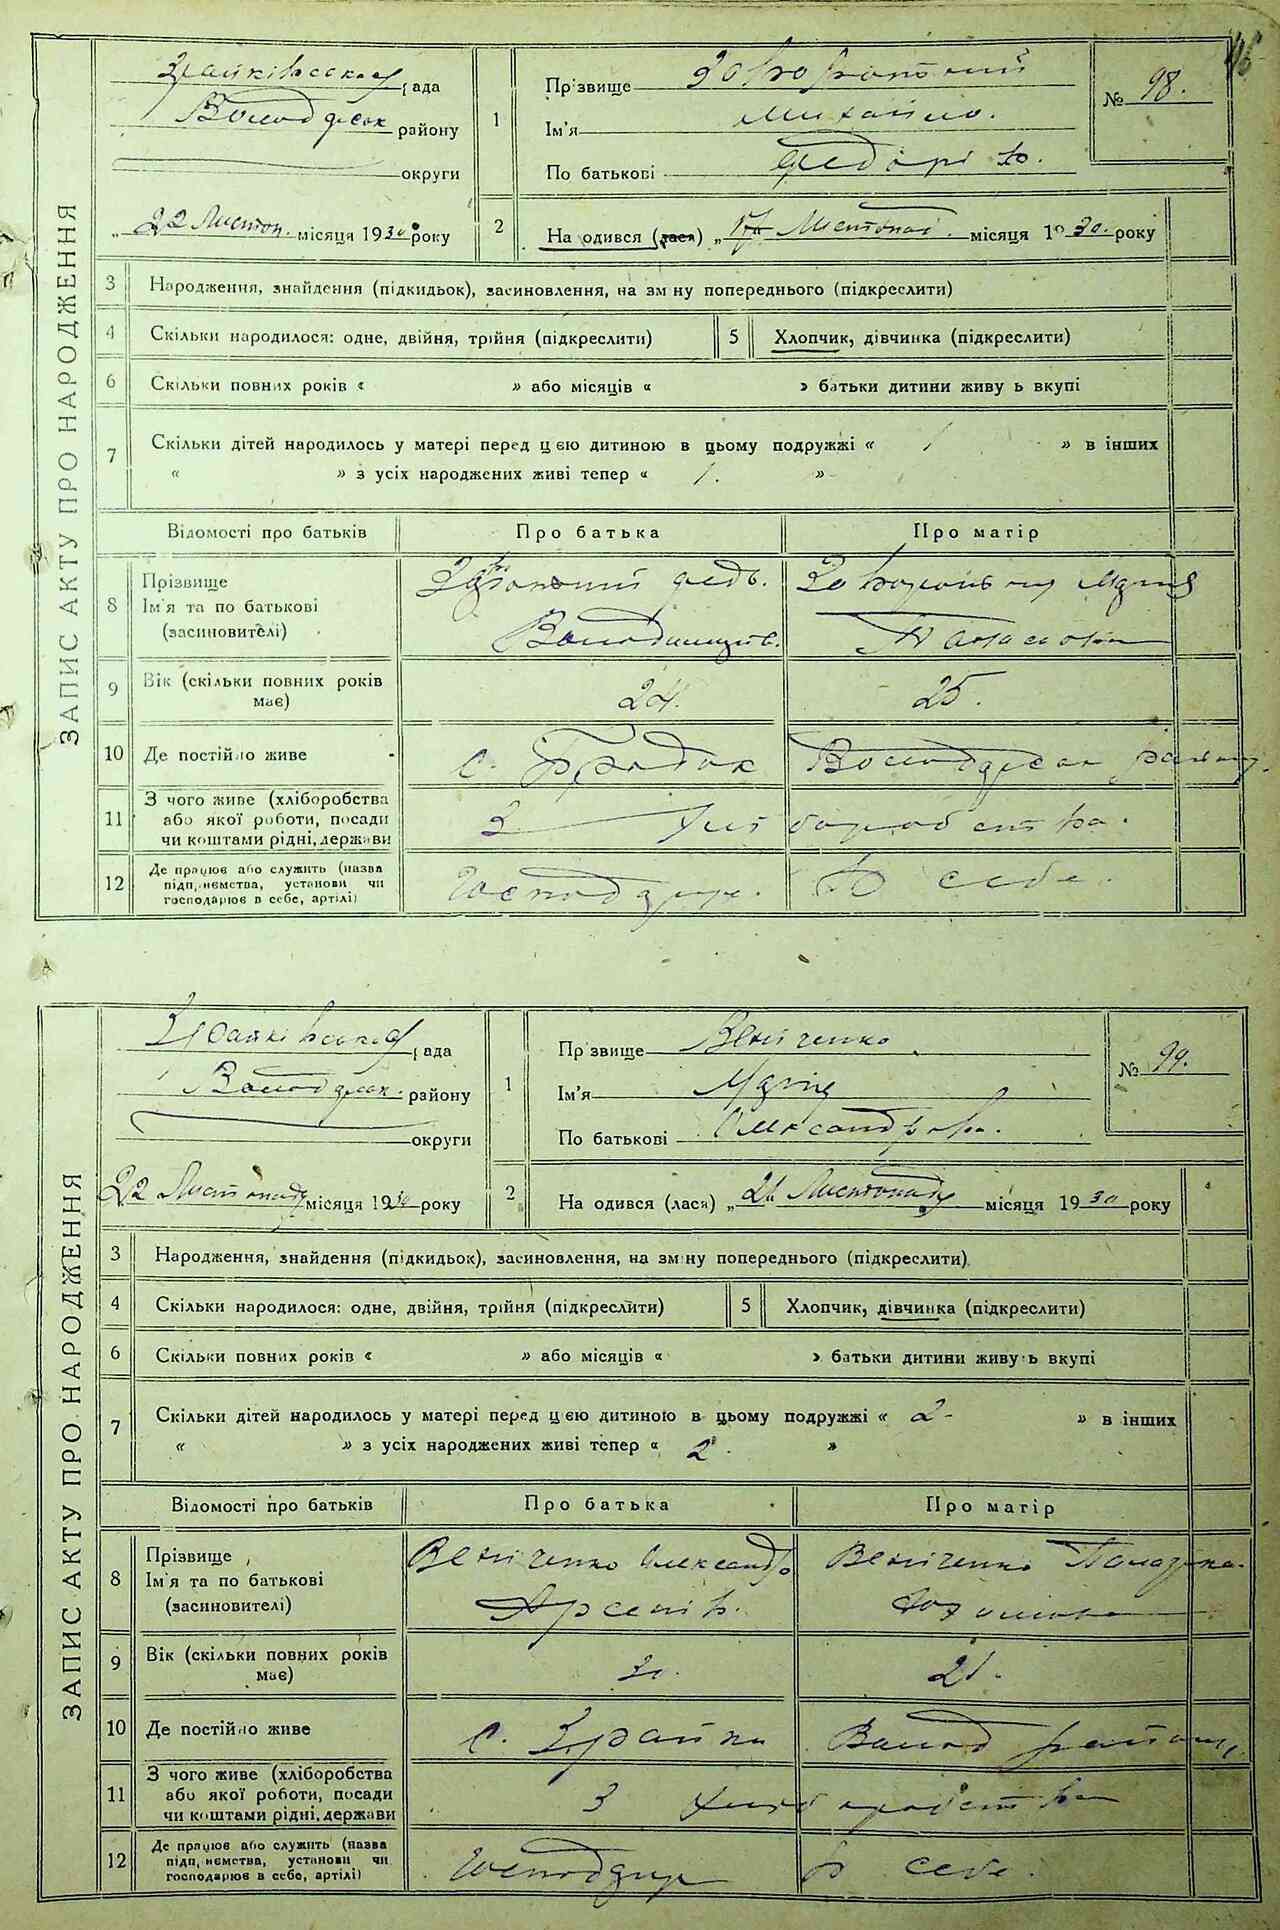 46
ЗАПИС АКТУ ПРО НАРОДЖЕННЯ
Зрайківська рада
Волод арськ району
округи
„22 Листоп. місяця 1930 року
1
Прізвище
Ім'я Михайло.
По батькові Федорів.
№ 98.
2
На одився (лася) „17 Листопад. місяця 1930. року
3 Народження, знайдення (підкидьок), засиновлення, на зм ну попереднього (підкреслити)
4 Скільки народилося: одне, двійня, трійня (підкреслити)
5 Хлопчик, дівчинка (підкреслити)
6 Скільки повних років « » або місяців « » батьки дитини живу ь вкупі
7 Скільки дітей народилось у матері перед цею дитиною в цьому подружжі « 1 » в інших
« » з усіх народжених живі тепер « 1. »
Відомості про батьків Про батька Про матір
8 Прізвище
Ім'я та по батькові
(засиновителі)
Федь.
Володимирів.
Марія
9 Вік (скільки повних років
має)
24. 25.
10 Де постійно живе с. Бродок Володарськ району.
11 З чого живе (хліборобства
або якої роботи, посади
чи коштами рідні, держави
З хліборобства.
12 Де працює або служить (назва
підприємства, установи чи
господарює в себе, артілі)
Господарує. В себе.
ЗАПИС АКТУ ПРО НАРОДЖЕННЯ
Зрайківська рада
Володарськ. району
округи
22 Листопада місяця 1930 року
1
Пр звище Веніченко
Ім'я Марія
По батькові Олександрівна.
№ 99.
2
На одився (лася) „21 Листопада місяця 1930 року
3 Народження, знайдення (підкидьок), засиновлення, на зм ну попереднього (підкреслити)
4 Скільки народилося: одне, двійня, трійня (підкреслити)
5 Хлопчик, дівчинка (підкреслити)
6 Скільки повних років « » або місяців « » батьки дитини живу ь вкупі
7 Скільки дітей народилось у матері перед цею дитиною в цьому подружжі « 2 - » в інших
« » з усіх народжених живі тепер « 2 »
Відомості про батьків Про батька Про матір
8 Прізвище
Ім'я та по батькові
(засиновителі)
Веніченко Олександр
Арсенів.
Веніченко Палажка.
9 Вік (скільки повних років
має)
10 Де постійно живе с. Зрайки Волод району.
11 З чого живе (хліборобства
або якої роботи, посади
чи коштами рідні, держави
З хліборобства
12 Де працює або служить (назва
підприємства, установи чи
господарює в себе, артілі)
Господарує в себе.